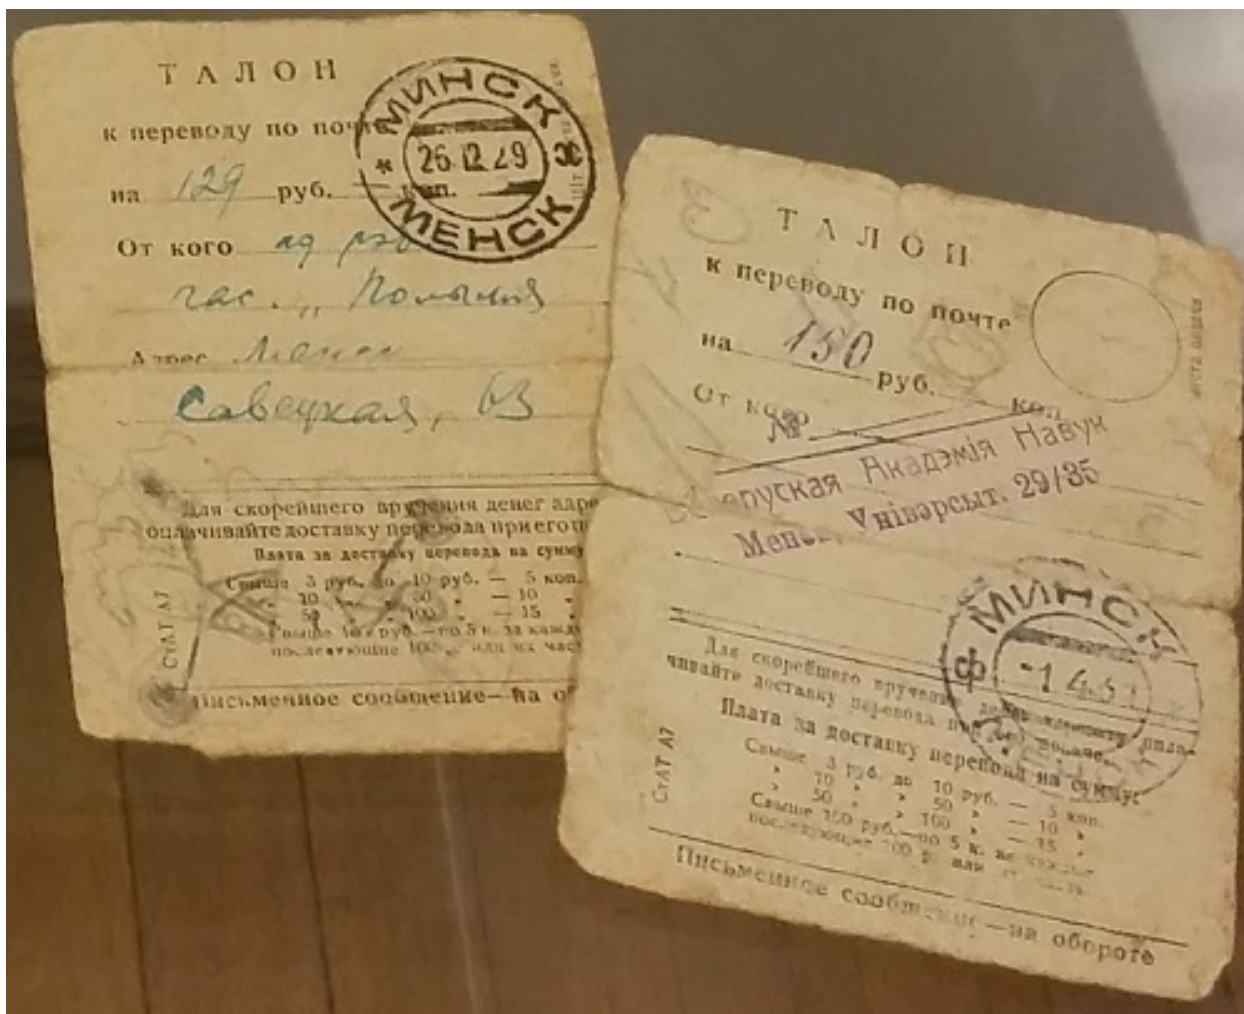 ТАЛОН
к переводу по почте
на 129 руб. — коп.
От кого ад рэд
час. „Полымя
Адрес Менск
Савецкая, 63
Для скорейшего вручения денег адре
оплачивайте доставку перевода при его п
Плата за доставку перевода на сумму
Свыше 3 руб. до 10 руб. — 5 коп.
„ 10 „ „ 50 „ — 10 „
„ 50 „ „ 100 „ — 15 „
Свыше 100 руб.—по 5 к. за кажду
последующие 100 р. или их част
СтАТ А7
Письменное сообщение—на о
МИНСК
26.12.29
МЕНСК
ТАЛОН
к переводу по почте
на 150 руб. коп.
От кого
№
Беларуская Акадэмія Навук
Менск, Універсыт. 29/35
МИНСК
Ф
-1 4.31
Для скорейшего вручения денег адресату опла-
чивайте доставку перевода при его подаче.
Плата за доставку перевода на сумму:
Свыше 3 руб. до 10 руб. — 5 коп.
„ 10 „ „ 50 „ — 10 „
„ 50 „ „ 100 „ — 15 „
Свыше 100 руб.—по 5 к. за каждые
последующие 100 р. или их часть.
СтАТ А7
Письменное сообщение—на обороте